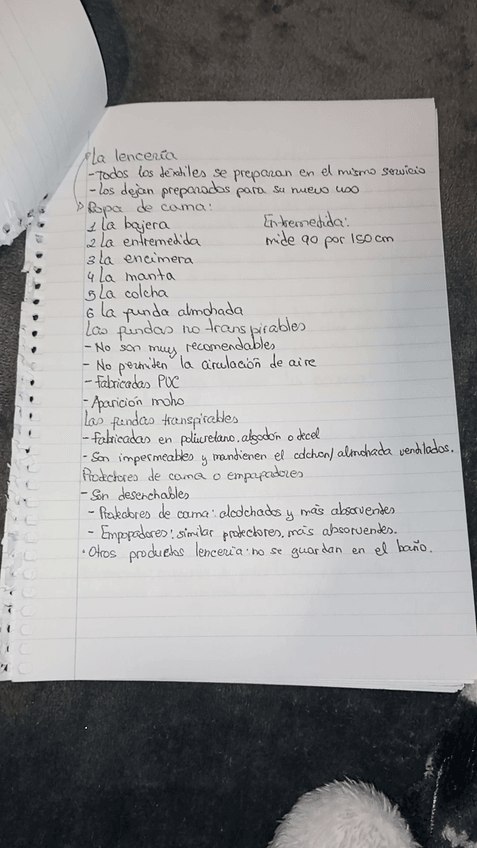 La lencería
- Todos los textiles se preparan en el mismo servicio
- Los dejan preparados para su nuevo uso
Ropa de cama:
1 La bajera
2 La entremedida
3 La encimera
4 La manta
5 La colcha
6 La funda almohada
Entremedida:
mide 90 por 150 cm
Las fundas no transpirables
- No son muy recomendables
- No permiten la circulación de aire
- Fabricadas PVC
- Aparición moho
Las fundas transpirables
- fabricadas en poliuretano, algodón o
- Son impermeables y mantienen el colchon/almohada ventilados.
Protectores de cama o empapadores
- Son desenchables
- Protectores de cama: alcolchados y más absorventes
- Empapadores: similar protectores, más absorventes.
· Otros productos lencería: no se guardan en el baño.